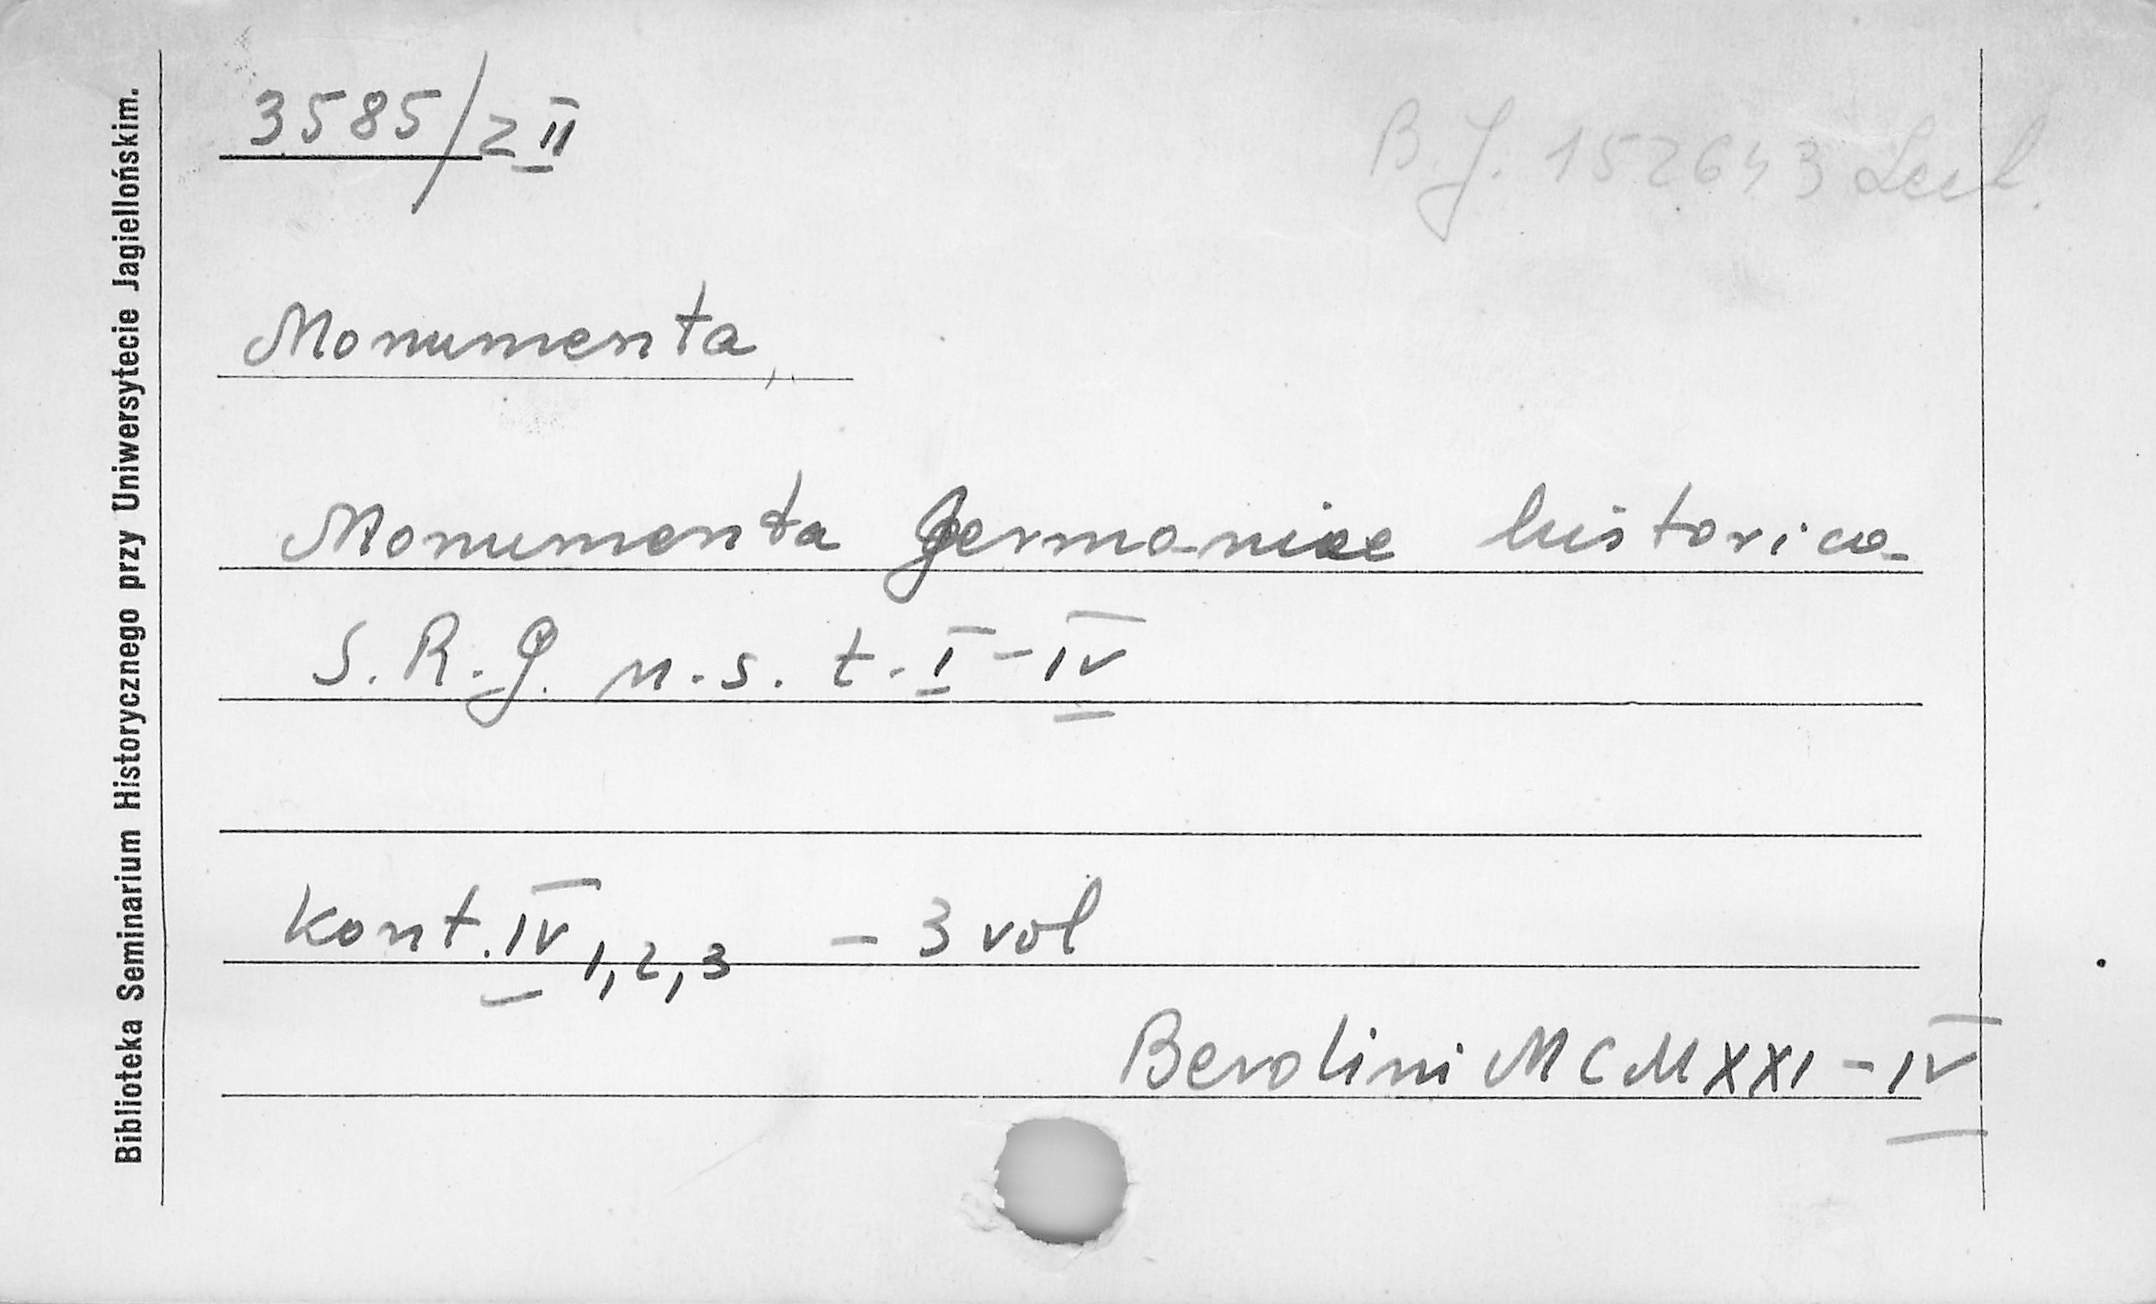 3585/z II
B.J. 152643
Monumenta,
Monumenta Germaniae historica
S. R. G. n. s. t. I - IV
kont. IV 1, 2, 3 - 3 vol
Berolini MCMXXI - IV
Biblioteka Seminarium Historycznego przy Uniwersytecie Jagiellońskim.